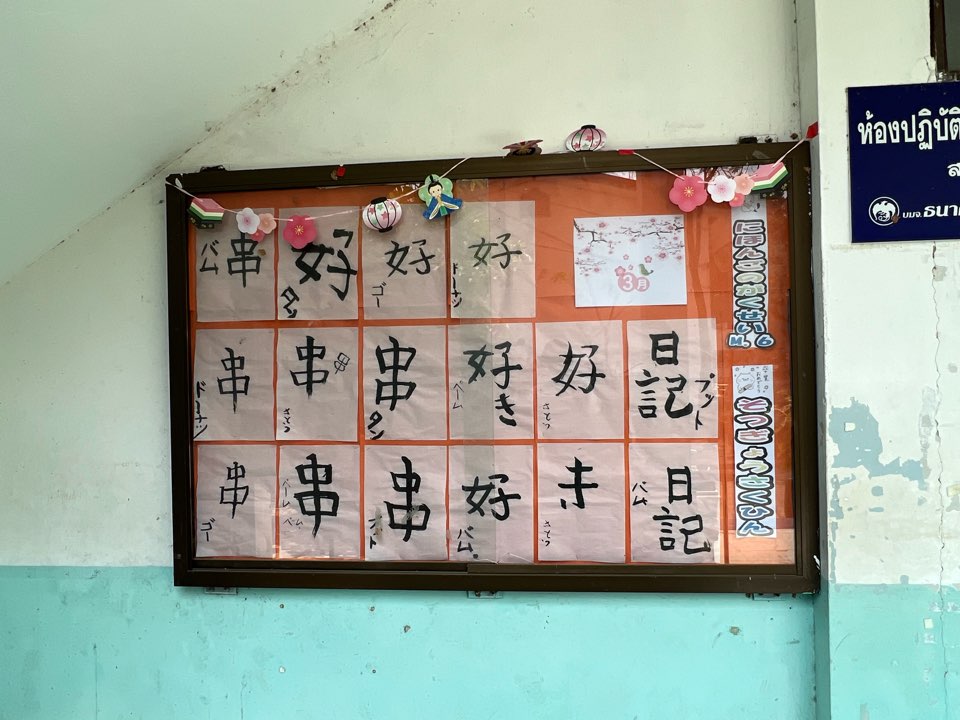 串
バム
好
タン
好
ゴー
好
ドーナツ
3月
串
ドーナツ
串
さてつ
串
タン
好き
ベーム
好
さてつ
日記
プット
串
ゴー
串
ベーム
串
オット
好
バム
未
さてつ
日記
バム
にほんごがくせい
M. 6
とつきょうさくひん
ห้องปฏิบัติ
ส
บมจ.ธนา